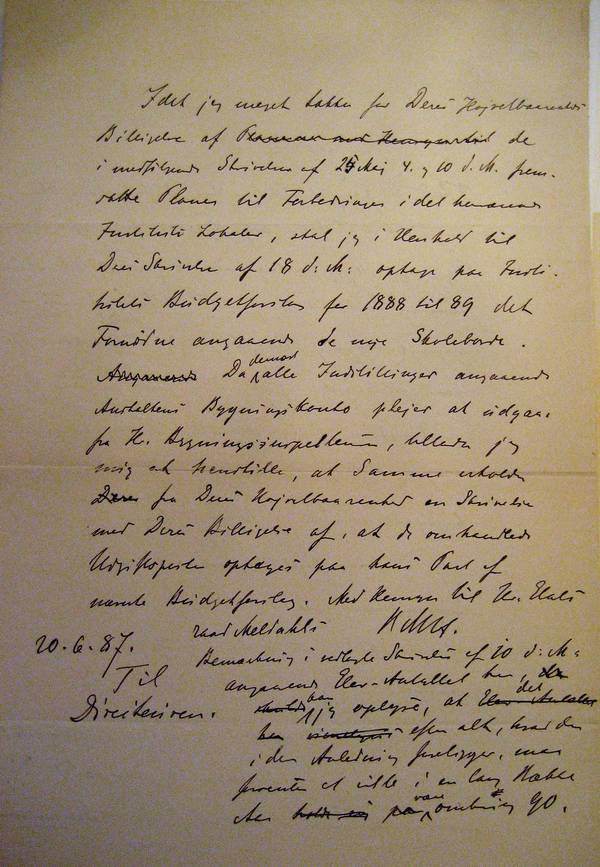 Idet jeg meget takker for Deres Højvelbaarenheds
Billigelse af de
i medfølgende Skrivelse af 25 Maj 4. og 10 d. M. frem-
satte Planer til Forbedringer i det herværende
Instituts Lokaler, skal jeg i Henhold til
Deres Skrivelse af 18 d. M. optage paa Insti-
tutets Budgetforslag for 1888 til 89 det
Fornødne angaaende de nye Skoleborde.
Angaaende Da derimod alle Indstillinger angaaende
Anstaltens Bygningskonto plejer at udgaa
fra Hr. Bygningsinspekteuren, tillader jeg
mig at henstille, at Samme erholder
fra Deres Højvelbaarenhed en Skrivelse
med Deres Billigelse af, at de omhandlede
Udgiftsposter optages paa hans Part af
nævnte Budgetforslag. Med Hensyn til Hr. Etats
raad Meldahls
20-6-87.
Bemærkning i vedlagte Skrivelse af 10 d. M.
Til
angaaende Elev-Antallet her,
Direktøren.
kan jeg oplyse, at det
her efter alt, hvad der
i den Anledning foreligger, man
forventer at ville i en lang Række
Aar være omkring 90.